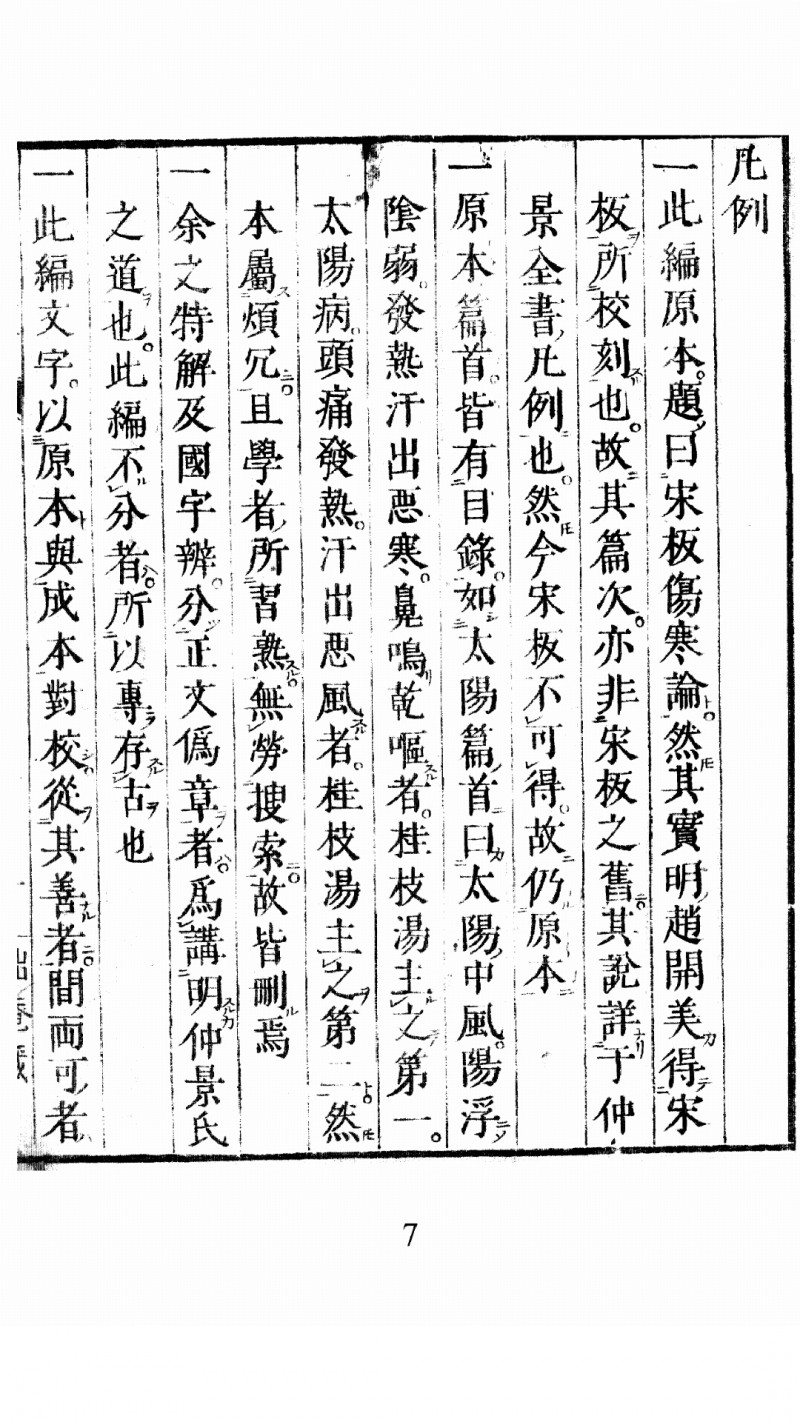 凡例
一此編原本。題曰宋板傷寒論。然其實明趙開美得宋
板所校刻也。故其篇次。亦非宋板之舊。其說詳于仲
景全書凡例也。然今宋板不可得。故仍原本
一原本篇首。皆有目錄。如太陽篇首曰太陽中風。陽浮
陰弱。發熱汗出惡寒。鼻鳴乾嘔者。桂枝湯主之第一。
太陽病。頭痛發熱。汗出惡風者。桂枝湯主之第二。然
本屬煩冗。且學者所習熟。無勞搜索。故皆刪焉
一余之特解及國字辨。分正文爲章者。爲講明仲景氏
之道也。此編不分者。所以專存古也
一此編文字。以原本與成本對校。從其善者。間両可者
7